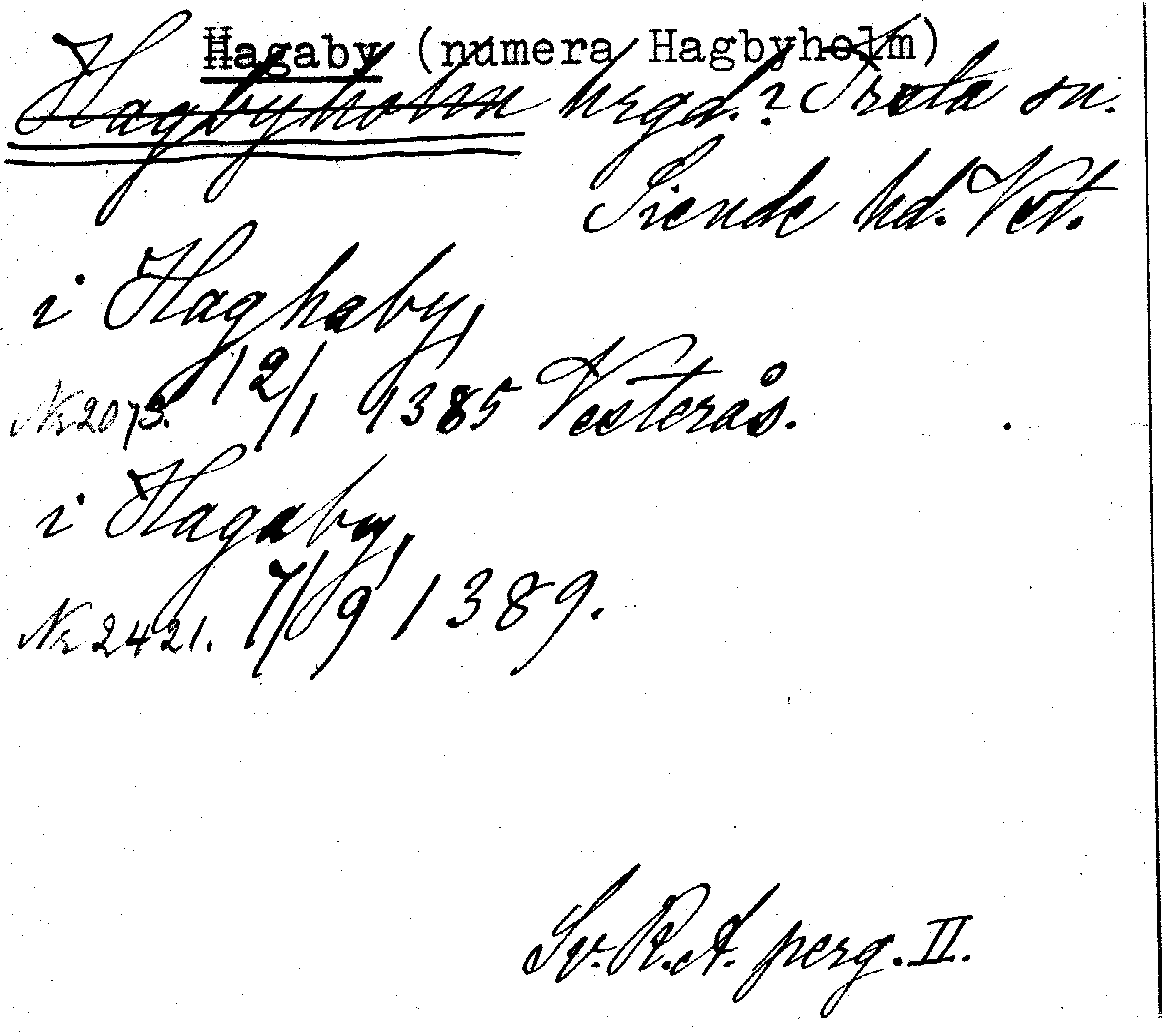 Hagaby (numera Hagbyholm)
Hagbyholm hrgd.? Irsta sn.
Siende hd. Vet.
i Haghaby,
Nr 2073. 12/1 1385 Vesterås.
i Hagaby,
Nr 2421. 7/9 1389.
Sv. R. A. perg. II.